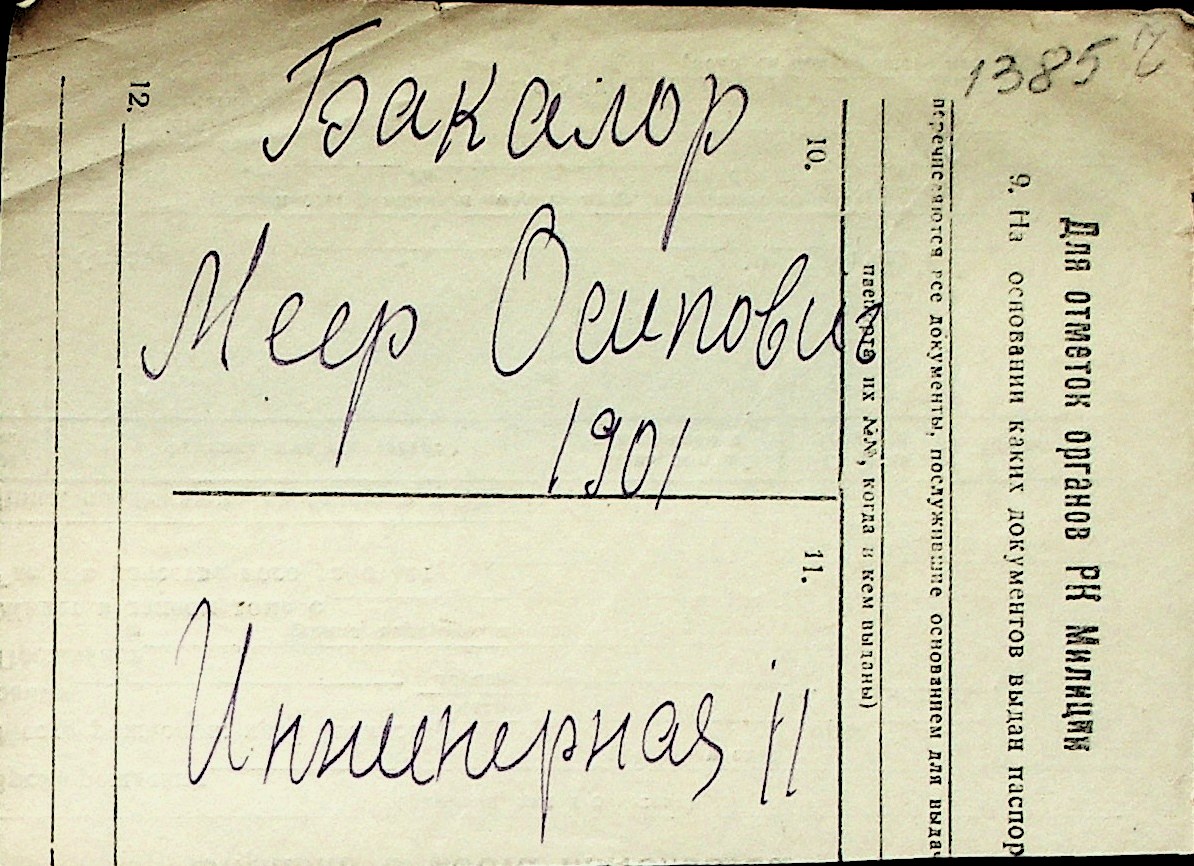 1385
Бакалор
Меер Осипович
1901
Инженерная 11
Для отметок органов РК Милиции
9. На основании каких документов выдан паспор
перечисляются все документы, послужившие основанием для выдач
паспорта их №№, когда и кем выданы)
10.
11.
12.